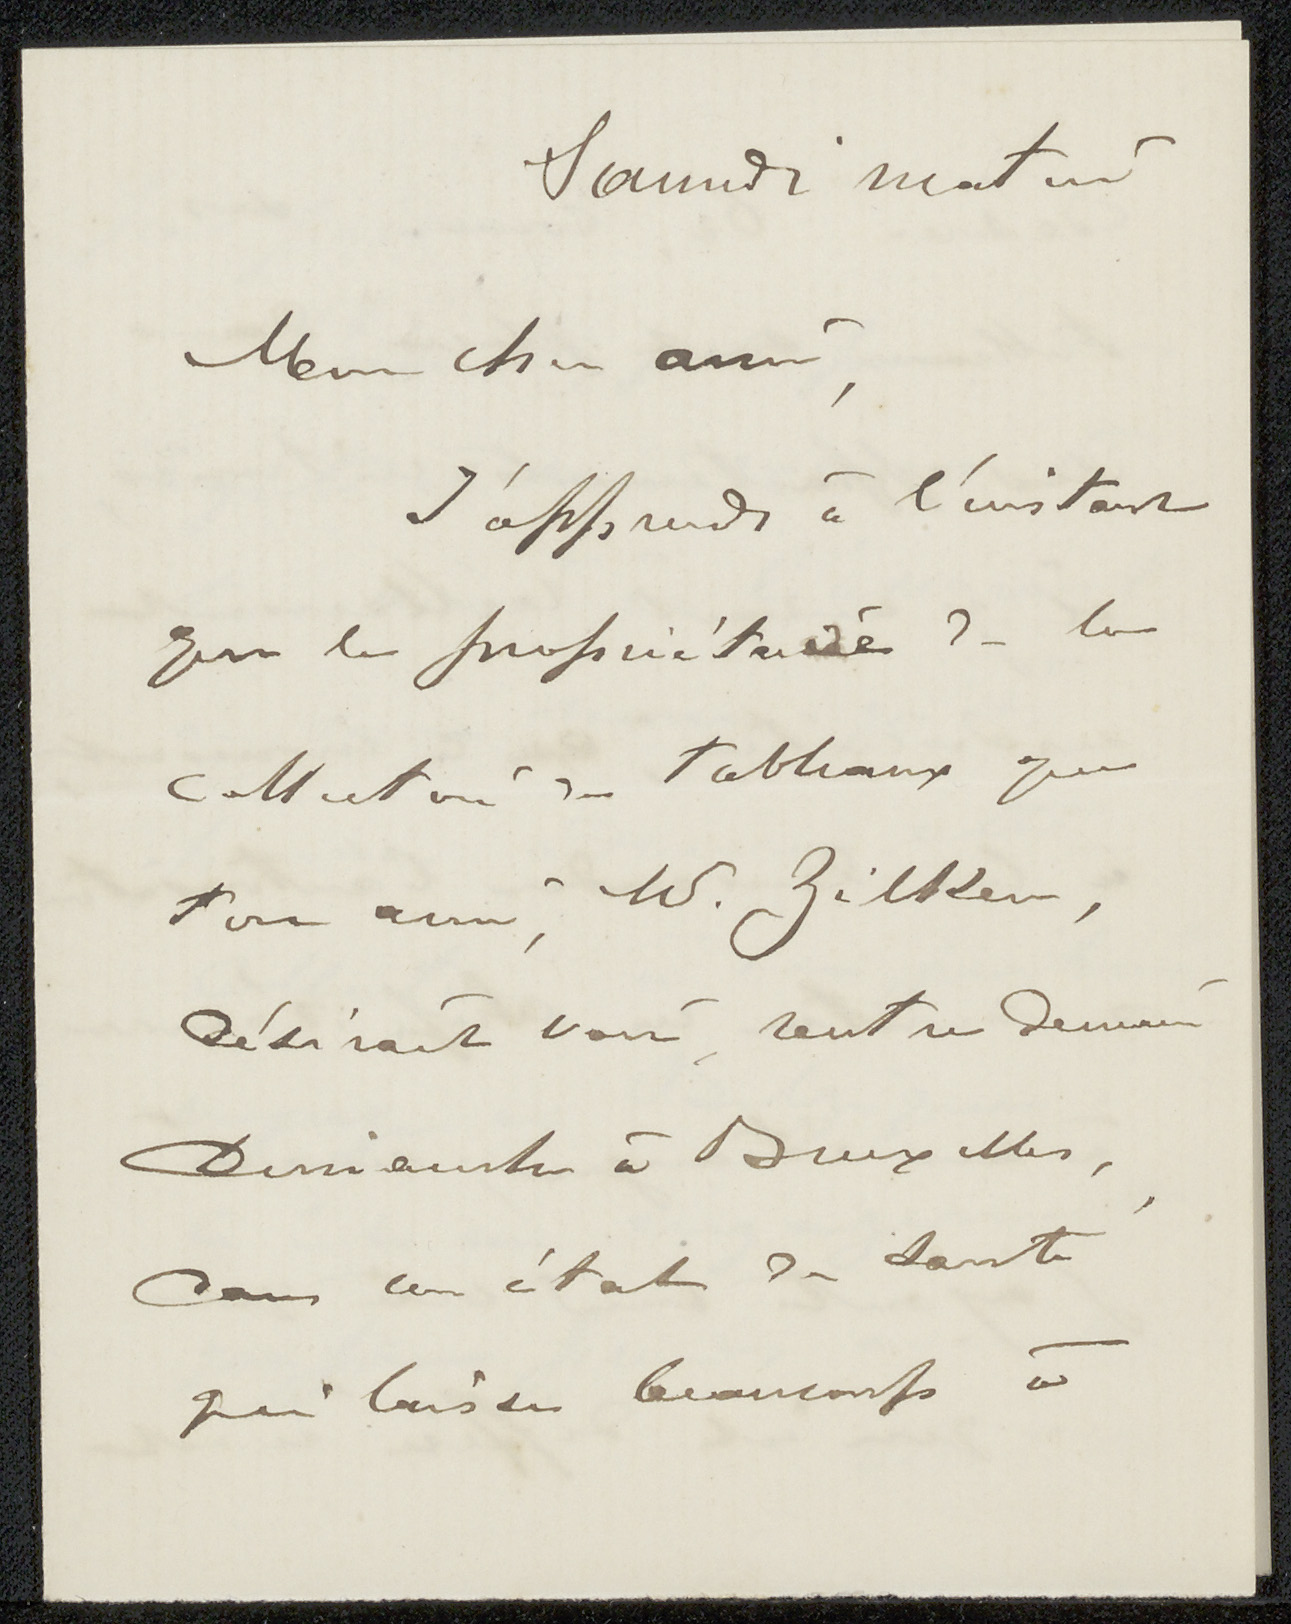 Samedi matin
Mon cher ami,
J'apprends à l'instant
que le propriétaire de la
collection de tableaux que
ton ami, M. Zilken,
désirait voir, rentre demain
Dimanche à Bruxelles,
dans un état de santé
qui laisse beaucoup à